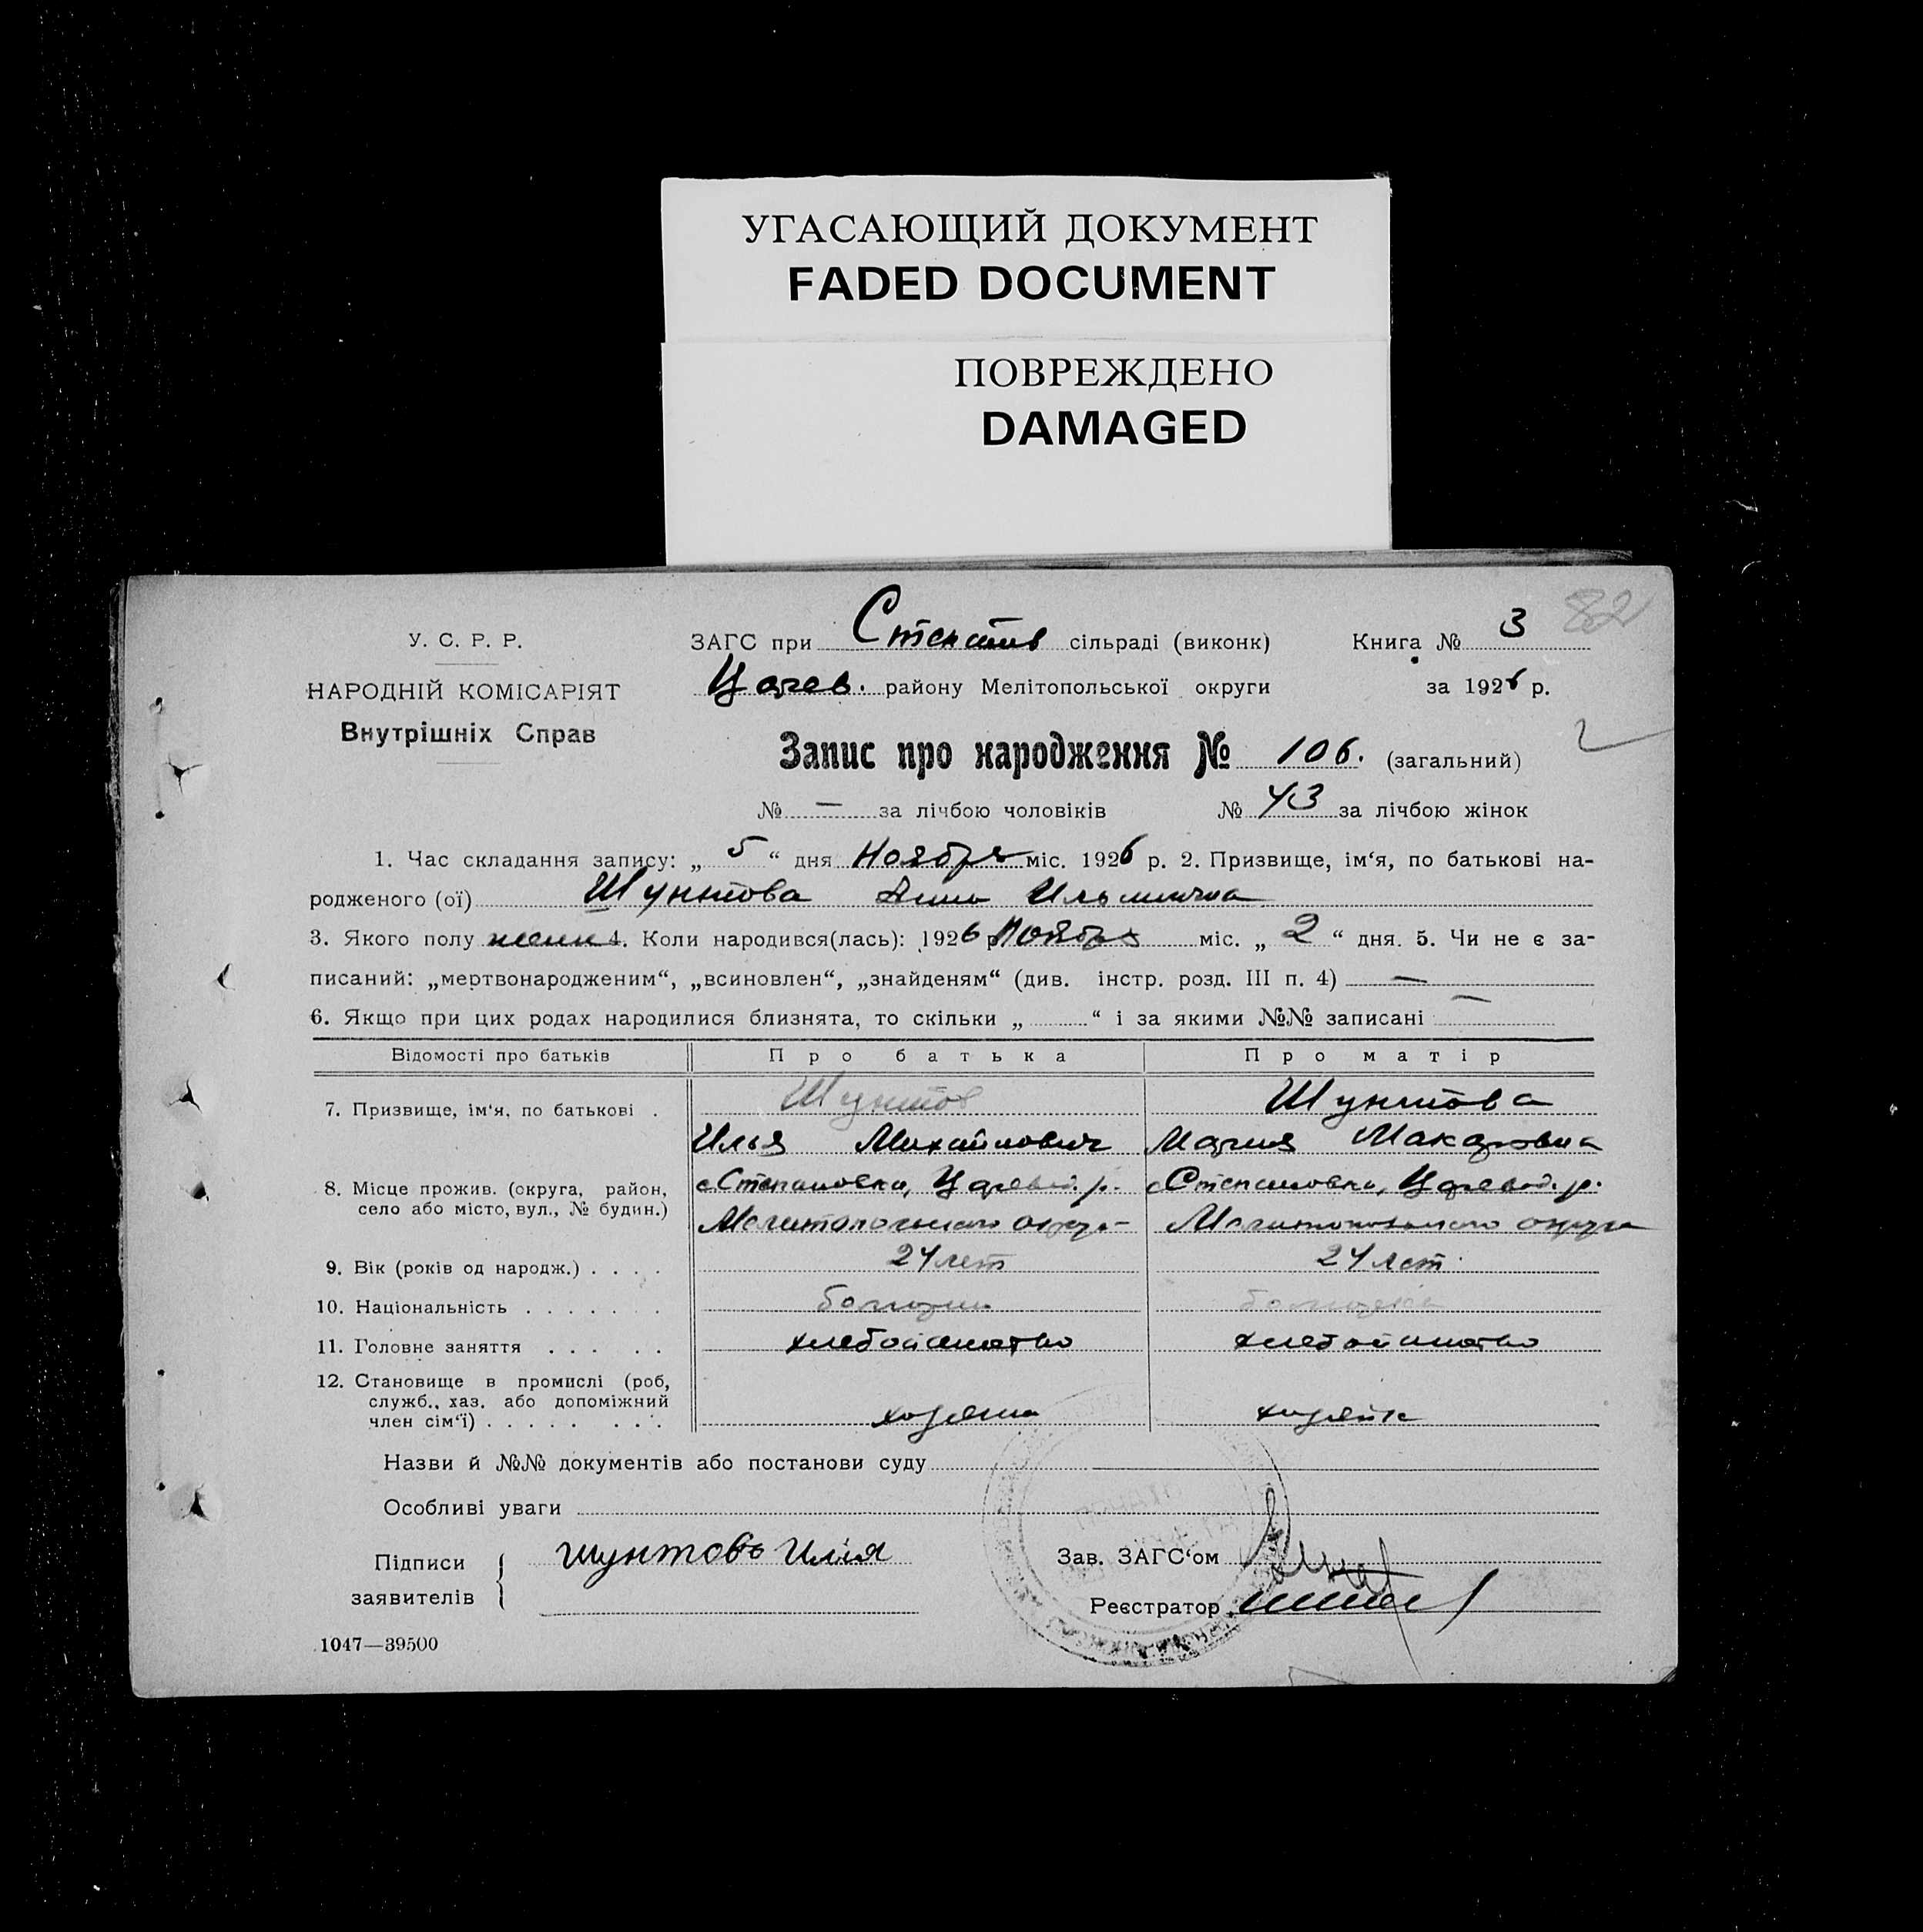 УГАСАЮЩИЙ ДОКУМЕНТ
FADED DOCUMENT
ПОВРЕЖДЕНО
DAMAGED
82
У. С. Р. Р.
НАРОДНІЙ КОМІСАРІЯТ
Внутрішніх Справ
ЗАГС при Степанів сільраді (виконк) Книга № 3
Царев. району Мелітопольської округи за 1926 р.
Запис про народження № 106. (загальний)
№ — за лічбою чоловіків № 43 за лічбою жінок
1. Час складання запису: „ 5 “ дня Ноября міс. 1926 р. 2. Призвище, ім‘я, по батькові на-
родженого (ої) Шунтова Анна Ильинична
3. Якого полу женск 4. Коли народився(лась): 1926 р Ноября міс. „ 2 “ дня. 5. Чи не є за-
писаний: „мертвонародженим“, „всиновлен“, „знайденям“ (див. інстр. розд. III п. 4) —
6. Якщо при цих родах народилися близнята, то скільки „ “ і за якими №№ записані —
Відомості про батьків Про батька Про матір
7. Призвище, ім‘я, по батькові . Шунтов Шунтова
Илья Михайлович Мария Макаровна
8. Місце прожив. (округа, район, с Степановка, Царевод. р. с Степановка, Царевод. р.
село або місто, вул., № будин.) Мелитопольского округа Мелитопольского округа
9. Вік (років од народж.) . . . . 24 лет 24 лет
10. Національність . . . . . . . болгарин болгарка
11. Головне заняття . . . . . хлебопашество хлебопашество
12. Становище в промислі (роб,
служб., хаз. або допоміжний
член сім‘ї) . . . . . . . . хозяин хозяйка
Назви й №№ документів або постанови суду
Особливі уваги
Підписи
заявителів
шунтовъ Илія
Зав. ЗАГС‘ом
Реєстратор
1047—39500